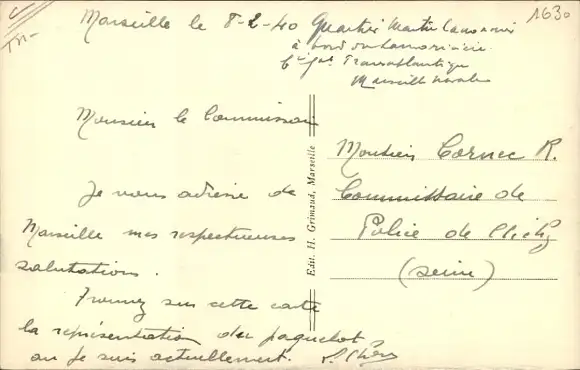 1630
Marseille le 8-2-40 Quartier Maitre
à bord du Lamoricière
Cie Gale Transatlantique
Marseille
Monsieur le Commissaire
Je vous adresse de
Marseille mes respectueuses
salutations.
Trouvez sur cette carte
la représentation du paquebot
ou je suis actuellement.
Edit. H. Grimaud, Marseille
Monsieur Cornec R.
Commissaire de
Police de Clichy
(Seine)